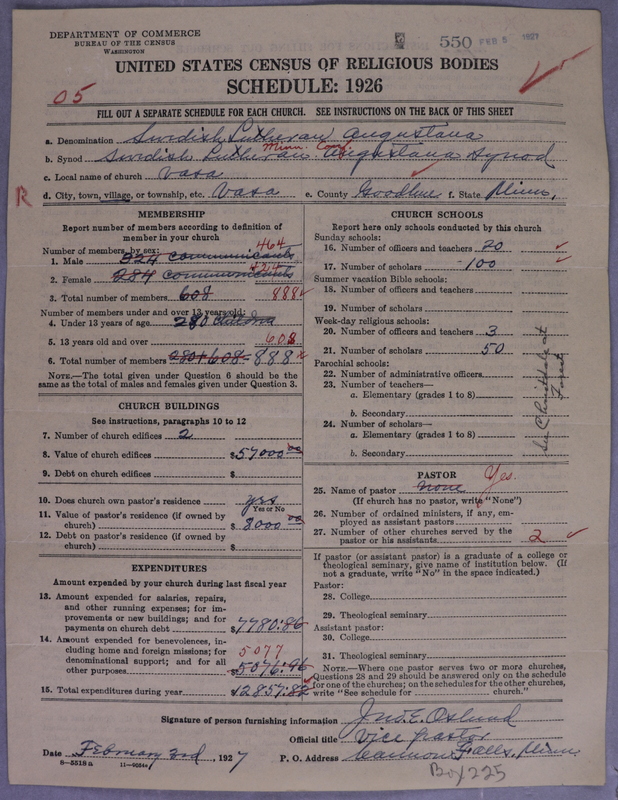 DEPARTMENT OF COMMERCE
BUREAU OF THE CENSUS
WASHINGTON
550 FEB 5 1927
UNITED STATES CENSUS OF RELIGIOUS BODIES
SCHEDULE: 1926
05
FILL OUT A SEPARATE SCHEDULE FOR EACH CHURCH. SEE INSTRUCTIONS ON THE BACK OF THIS SHEET
a. Denomination Swedish Lutheran Augustana
Minn. Conf.
b. Synod Swedish Lutheran Augustana Synod
c. Local name of church Vasa
R
d. City, town, village, or township, etc. Vasa e. County Goodhue f. State Minn.
MEMBERSHIP
Report number of members according to definition of
member in your church
Number of members by sex:
464
1. Male 324 communicants
424
2. Female 284 communicants
3. Total number of members 608 888
Number of members under and over 13 years old:
4. Under 13 years of age 280 children
5. 13 years old and over 608
6. Total number of members 280+608- 888
NOTE.—The total given under Question 6 should be
same as the total of males and females given under Question 3.
CHURCH BUILDINGS
See instructions, paragraphs 10 to 12
7. Number of church edifices 2
8. Value of church edifices $57000 00
9. Debt on church edifices $
10. Does church own pastor's residence yes
Yes or No
11. Value of pastor's residence (if owned by
church) $8000 00
12. Debt on pastor's residence (if owned by
church) $
EXPENDITURES
Amount expended by your church during last fiscal year
13. Amount expended for salaries, repairs,
and other running expenses; for im-
provements or new buildings; and for
payments on church debt $7780.86
14. Amount expended for benevolences, in-
cluding home and foreign missions; for
5077
denominational support; and for all
other purposes $5076.96
15. Total expenditures during year $12857.82
CHURCH SCHOOLS
Report here only schools conducted by this church
Sunday schools:
16. Number of officers and teachers 20
17. Number of scholars 100
Summer vacation Bible schools:
18. Number of officers and teachers
19. Number of scholars
Week-day religious schools:
20. Number of officers and teachers 3
21. Number of scholars 50
Parochial schools:
22. Number of administrative officers
23. Number of teachers—
a. Elementary (grades 1 to 8)
b. Secondary
24. Number of scholars—
a. Elementary (grades 1 to 8)
b. Secondary
PASTOR
Yes.
25. Name of pastor None
(If church has no pastor, write "None")
26. Number of ordained ministers, if any, em-
ployed as assistant pastors
27. Number of other churches served by the
pastor or his assistants 2
If pastor (or assistant pastor) is a graduate of a college or
theological seminary, give name of institution below. (If
not a graduate, write "No" in the space indicated.)
Pastor:
28. College
29. Theological seminary
Assistant pastor:
30. College
31. Theological seminary
NOTE.—Where one pastor serves two or more churches,
Questions 28 and 29 should be answered only on the schedule
for one of the churches; on the schedules for the other churches,
write "See schedule for church."
Signature of person furnishing information Jno. E. Oslund
Official title Vice pastor
Date February 3rd, 1927 P. O. Address Cannon Falls, Minn
8—5518 a 11—9054
Box 225